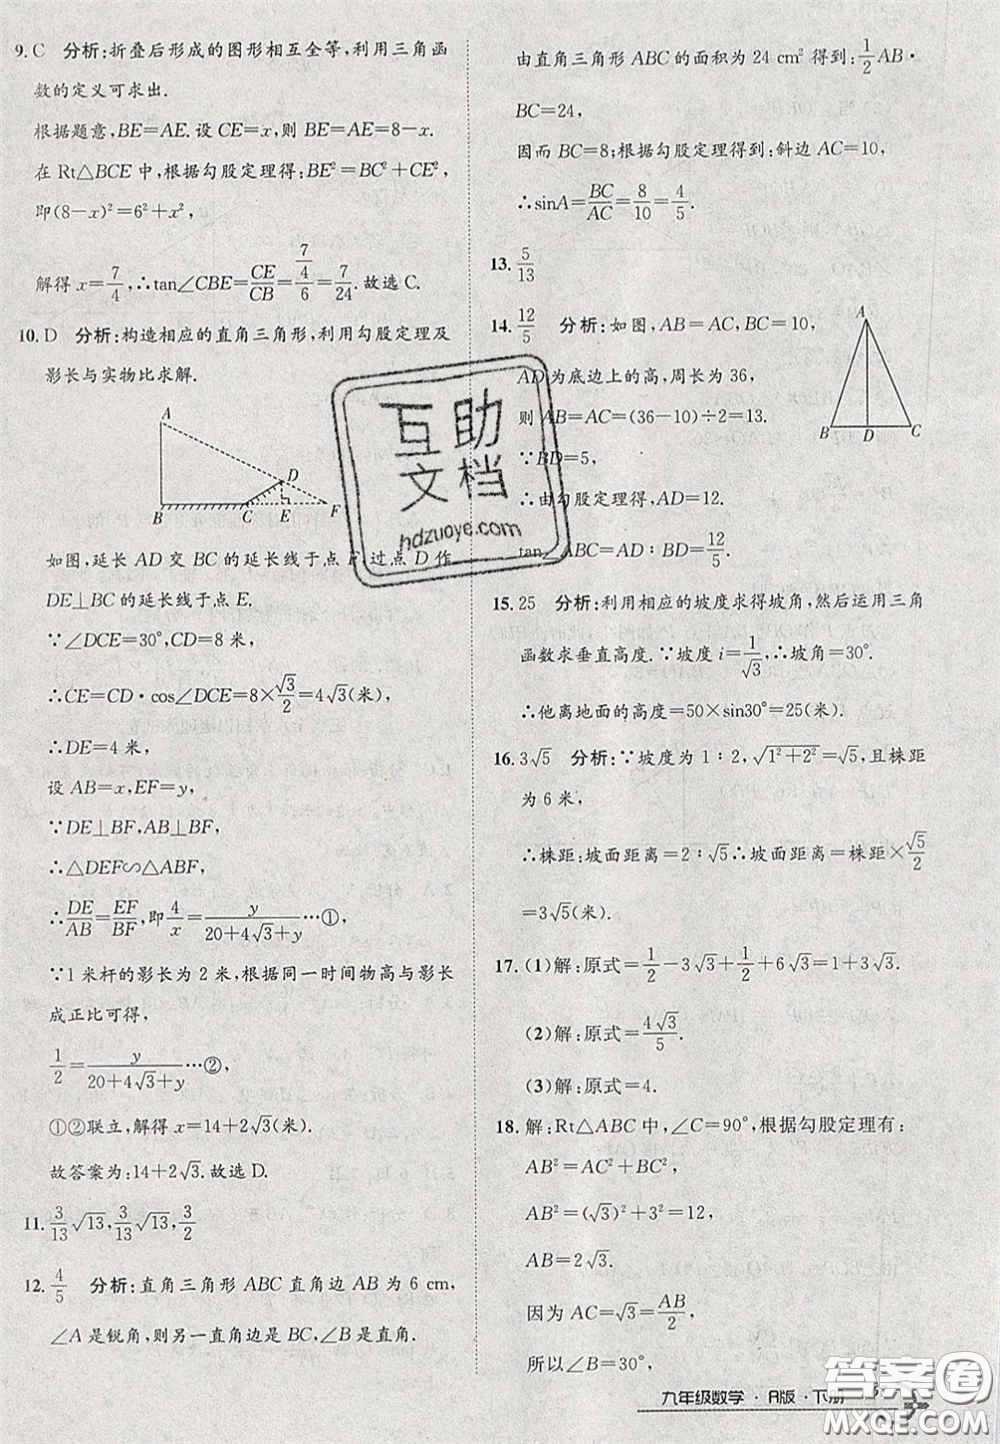 9. C 分析:折叠后形成的图形相互全等,利用三角函
数的定义可求出.
根据题意,BE=AE.设 CE=x,则 BE=AE=8-x.
在 Rt△BCE 中,根据勾股定理得:BE²=BC²+CE²,
即(8-x)²=6²+x²,
解得 x=7/4,∴tan∠CBE=CE/CB=(7/4)/6=7/24.故选 C.
10. D 分析:构造相应的直角三角形,利用勾股定理及
影长与实物比求解.
A
D
B C E F
如图,延长 AD 交 BC 的延长线于点 F,过点 D 作
DE⊥BC 的延长线于点 E.
∵∠DCE=30°,CD=8 米,
∴CE=CD·cos∠DCE=8×√3/2=4√3(米),
∴DE=4 米,
设 AB=x,EF=y,
∵DE⊥BF,AB⊥BF,
∴△DEF∽△ABF,
∴DE/AB=EF/BF,即 4/x=y/(20+4√3+y)…①,
∵1 米杆的影长为 2 米,根据同一时间物高与影长
成正比可得,
1/2=x/(20+4√3+y)…②,
①②联立,解得 x=14+2√3(米).
故答案为:14+2√3.故选 D.
11. 3/13√13,3/13√13,3/2
12. 4/5 分析:直角三角形 ABC 直角边 AB 为 6 cm,
∠A 是锐角,则另一直角边是 BC,∠B 是直角.
由直角三角形 ABC 的面积为 24 cm² 得到:1/2 AB·
BC=24,
因而 BC=8;根据勾股定理得到:斜边 AC=10,
∴sinA=BC/AC=8/10=4/5.
13. 5/13
14. 12/5 分析:如图,AB=AC,BC=10,
AD 为底边上的高,周长为 36,
则 AB=AC=(36-10)÷2=13.
∵BD=5,
∴由勾股定理得,AD=12.
tan∠ABC=AD∶BD=12/5.
A
B D C
15. 25 分析:利用相应的坡度求得坡角,然后运用三角
函数求垂直高度.∵坡度 i=1/√3,∴坡角=30°.
∴他离地面的高度=50×sin30°=25(米).
16. 3√5 分析:∵坡度为 1∶2,√(1²+2²)=√5,且株距
为 6 米,
∴株距∶坡面距离=2∶√5∴坡面距离=株距×√5/2
=3√5(米).
17. (1)解:原式=1/2-3√3+1/2+6√3=1+3√3.
(2)解:原式=4√3/5.
(3)解:原式=4.
18. 解:Rt△ABC 中,∠C=90°,根据勾股定理有:
AB²=AC²+BC²,
AB²=(√3)²+3²=12,
AB=2√3.
因为 AC=√3=AB/2,
所以∠B=30°,
九年级数学·R版·下册
互助
文档
hdzuoye.com
答案圈
MXQE.COM